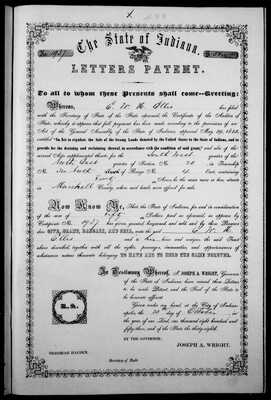 The State of Indiana,
LETTERS PATENT.
To all to whom these Presents shall come—Greeting:
Whereas, C. W. H. Ellis has filed
with the Secretary of State of the State aforesaid the Certificate of the Auditor of
State, whereby it appears that full payment has been made according to the provisions of an
Act of the General Assembly of the State of Indiana, approved May 29, 1852,
entitled "An Act to regulate the sale of the Swamp Lands donated by the United States to the State of Indiana, and to
provide for the draining and reclaiming thereof, in accordance with the condition of said grant;" and also of the
several Acts supplemental thereto for the
quarter of Section No. in Township
No. of Range No. East, containing
Forty Acres, be the same more or less, situate
in Marshall County, when said lands were offered for sale.
Now Know Ye, That the State of Indiana, for and in consideration
of the sum of Fifty Dollars, paid as represented as appears by
Certificate No. has given, granted, bargained and sold, and by these Presents
does GIVE, GRANT, BARGAIN, AND SELL, unto the said C. W. H.
Ellis and to his heirs and assigns the said Tract
above described, together with all the rights, privileges, immunities, and appurtenances of
whatsoever nature thereunto belonging, TO HAVE AND TO HOLD THE SAME FOREVER.
In Testimony Whereof, I, JOSEPH A. WRIGHT, Governor
of the State of Indiana, have caused these Letters
to be made Patent, and the Seal of the State to
be hereunto affixed.
L.S.
Given under my hand, at the City of Indian-
apolis, the day of October, in
the year of our Lord, one thousand eight hundred and
fifty-three, and of the State the thirty-eighth.
BY THE GOVERNOR,
JOSEPH A. WRIGHT.
NEHEMIAH HAYDEN,
Secretary of State